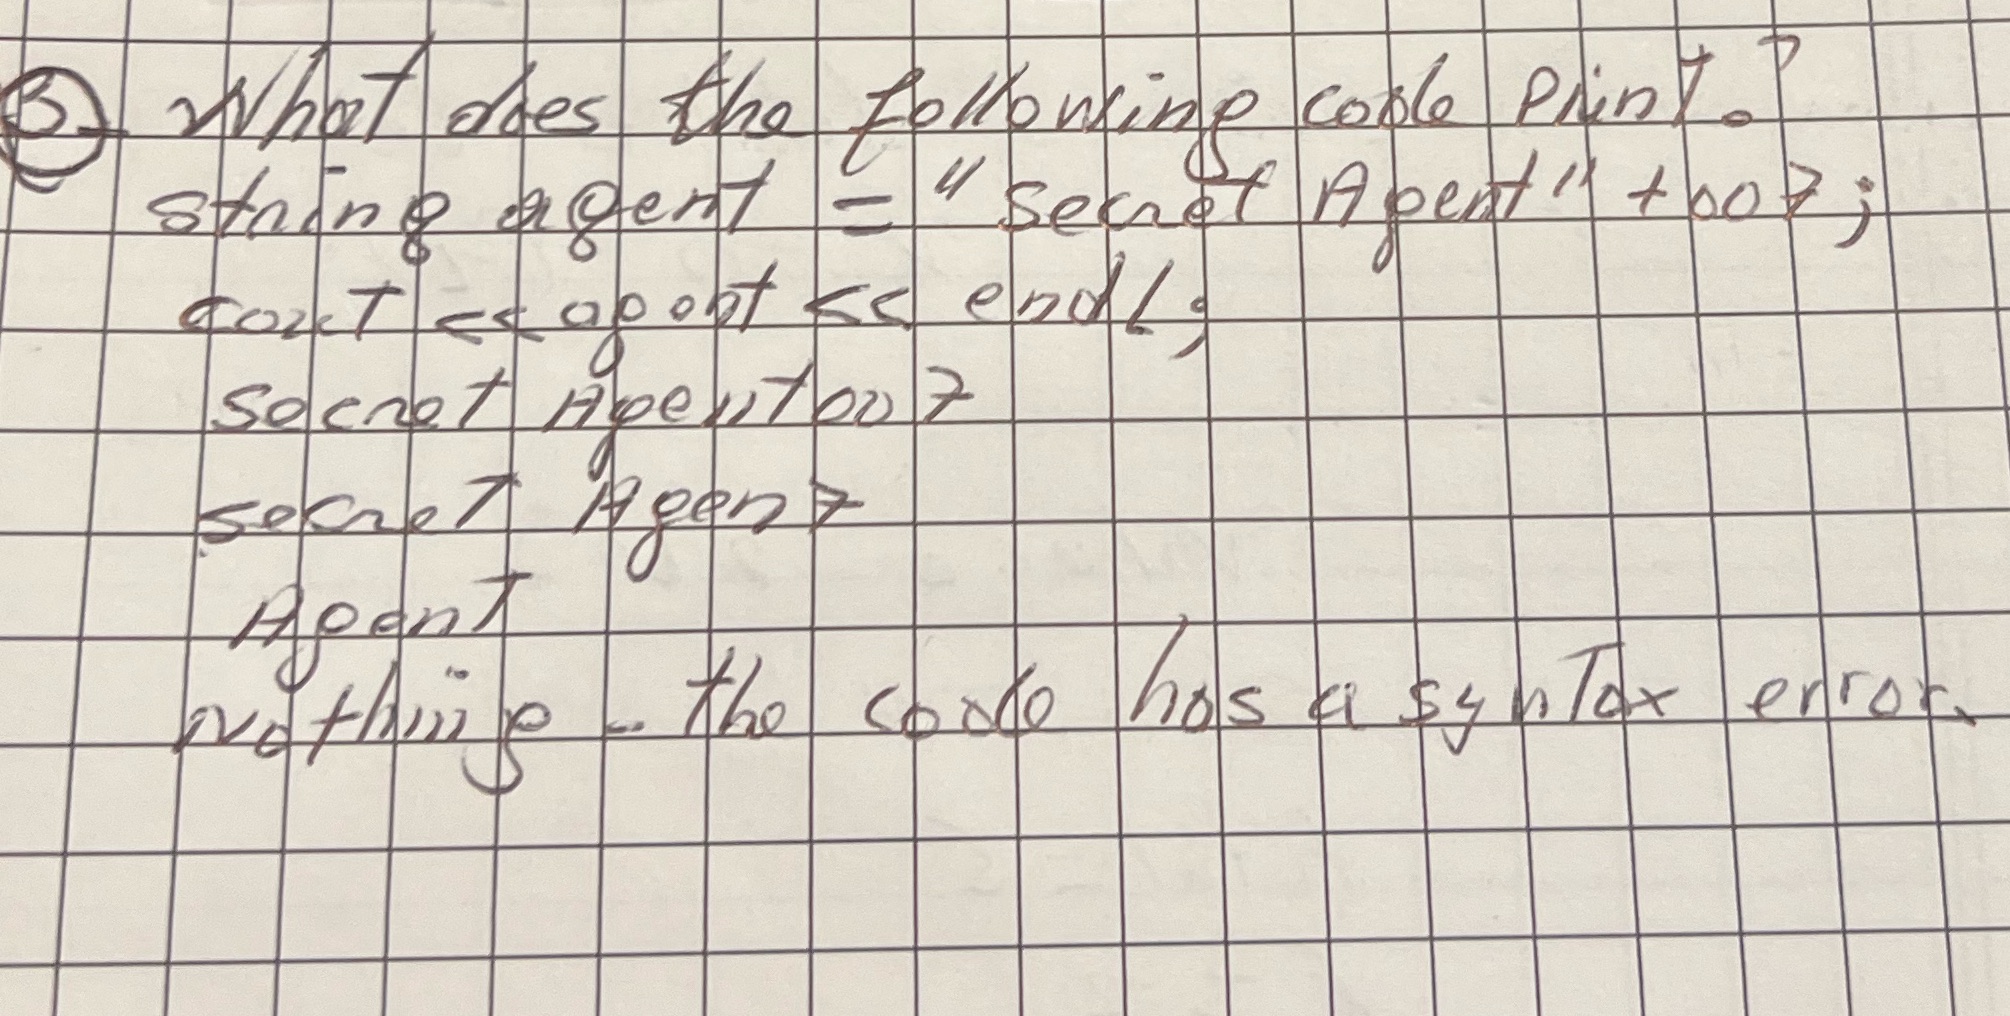 3 What does the following code Print?
string agent = "Secret Agent" + 007;
cout << agent << endl;
Secret Agent007
Secret Agent
Agent
Nothing - the code has a syntax error.